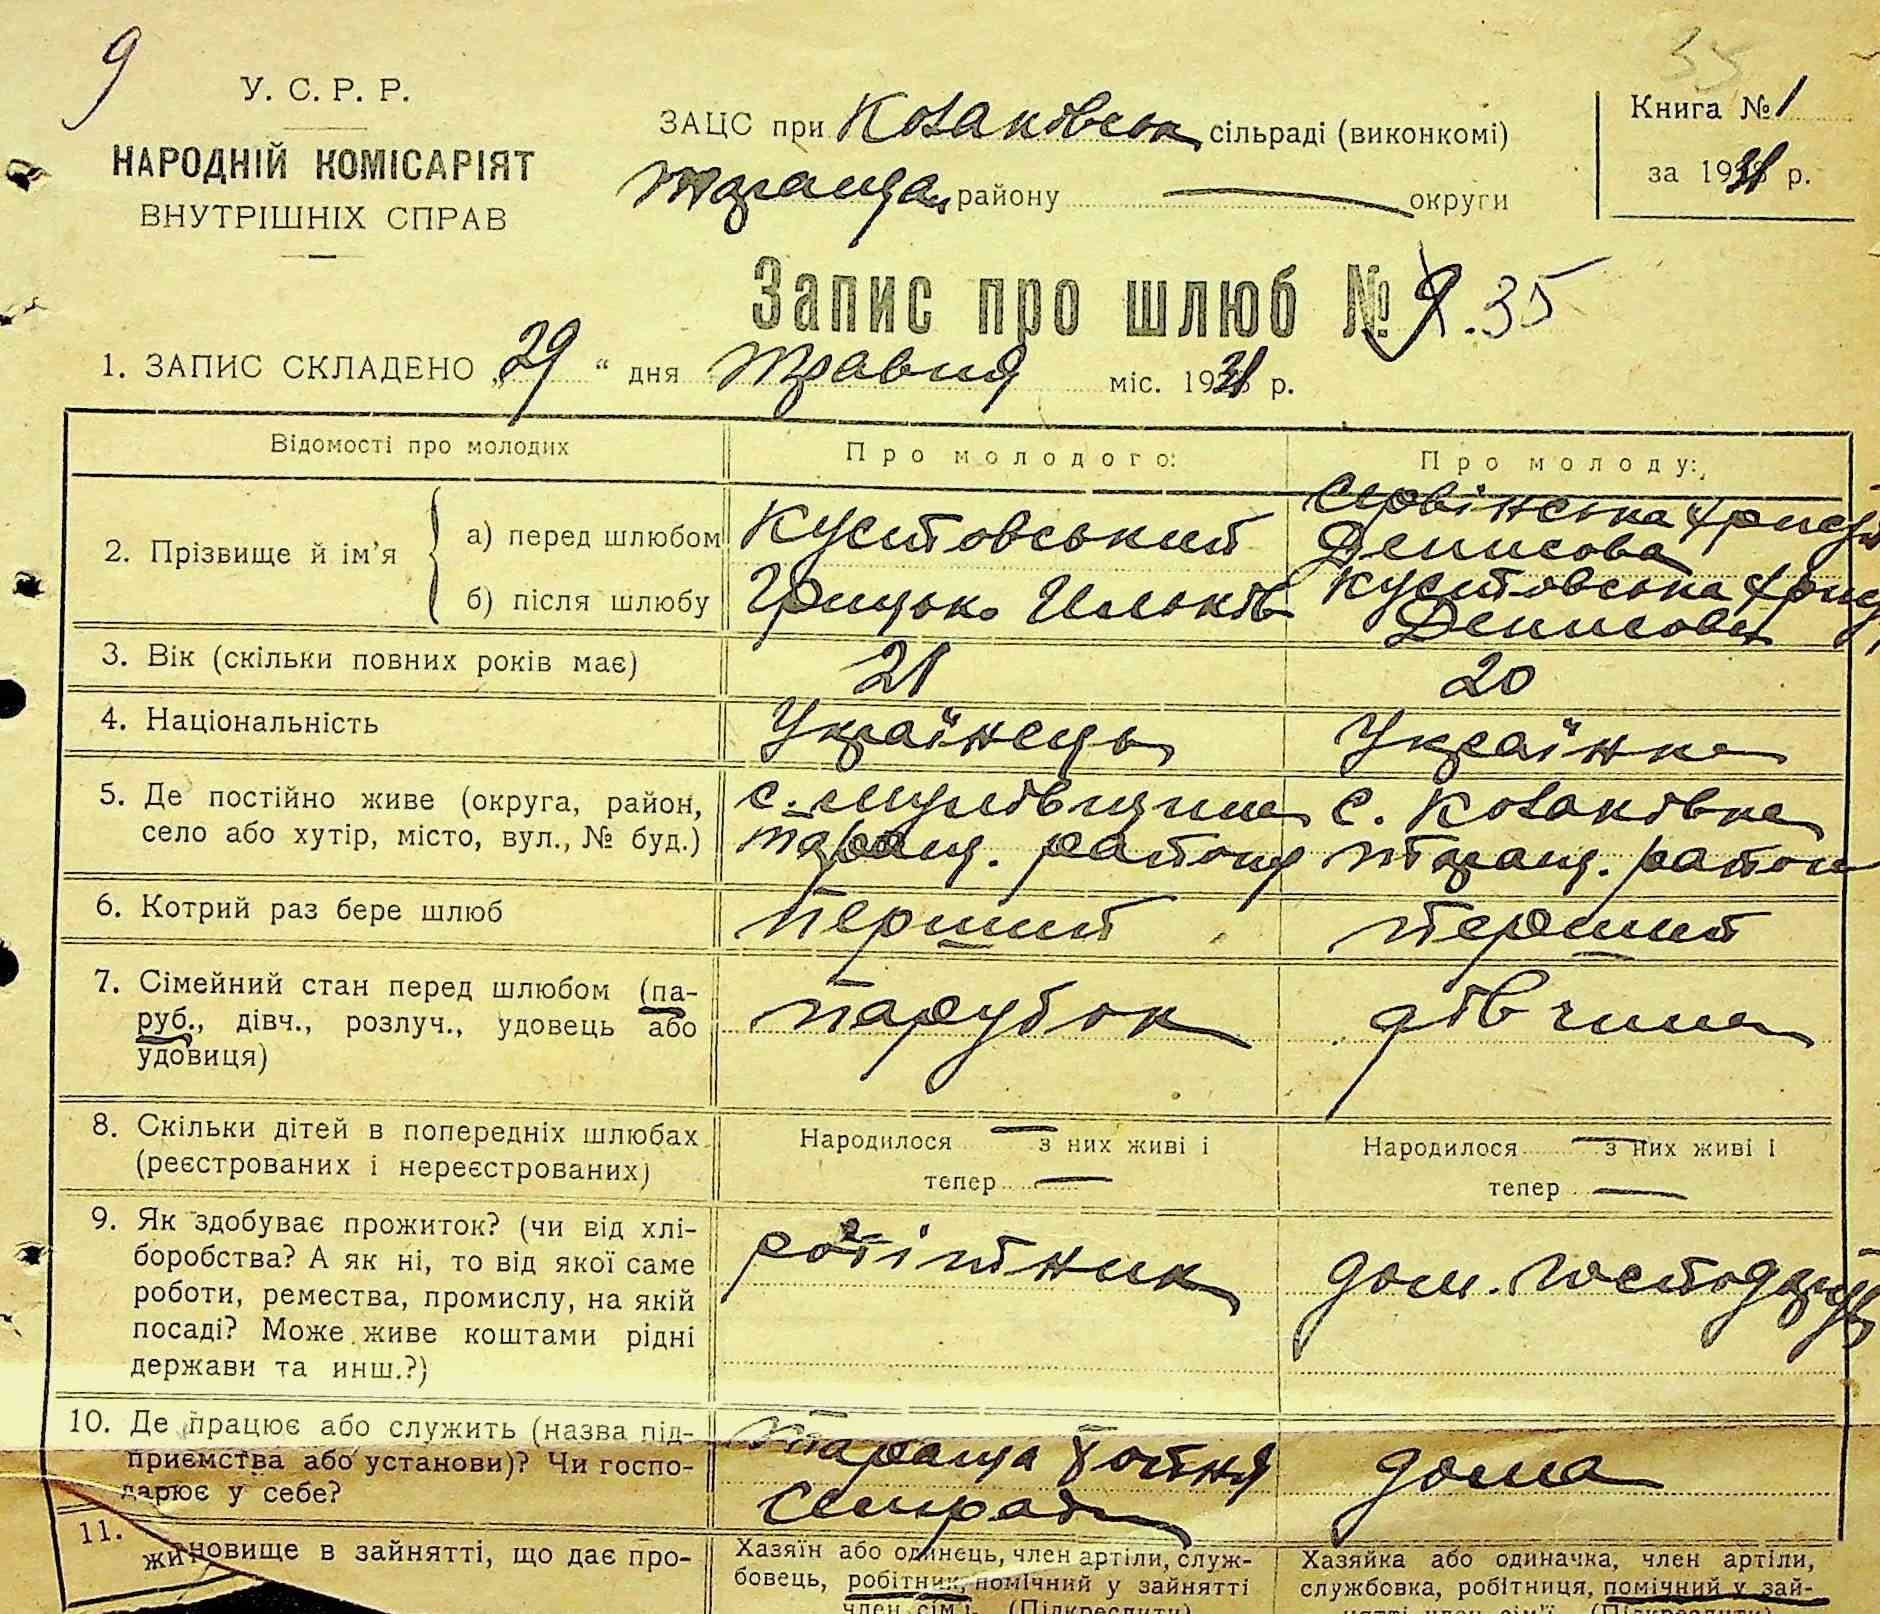 9
35
У. С. Р. Р.
НАРОДНІЙ КОМІСАРІЯТ
ВНУТРІШНІХ СПРАВ
ЗАЦС при Козаківськ сільраді (виконкомі)
Таращан. району — округи
Книга № 1
за 1931 р.
Запис про шлюб № 9. 35
1. ЗАПИС СКЛАДЕНО „29“ дня Травня міс. 1931 р.
Відомості про молодих
Про молодого:
Про молоду:
2. Прізвище й ім’я
а) перед шлюбом
б) після шлюбу
Кустовський
Грицько Ильків
Денисова
Кустовська
Денисова
3. Вік (скільки повних років має)
21
20
4. Національність
Українець
Українка
5. Де постійно живе (округа, район,
село або хутір, місто, вул., № буд.)
с.
Таращ. району
с. Козаківка
Таращ. району
6. Котрий раз бере шлюб
перший
перший
7. Сімейний стан перед шлюбом (па-
руб., дівч., розлуч., удовець або
удовиця)
парубок
дівчина
8. Скільки дітей в попередніх шлюбах
(реєстрованих і нереєстрованих)
Народилося — з них живі і
тепер —
Народилося — з них живі і
тепер —
9. Як здобуває прожиток? (чи від хлі-
боробства? А як ні, то від якої саме
роботи, ремества, промислу, на якій
посаді? Може живе коштами рідні
держави та инш.?)
робітник
дом.
10. Де працює або служить (назва під-
приємства або установи)? Чи госпо-
дарює у себе?
Тараща
дома
11.
жи
новище в зайнятті, що дає про-
Хазяїн або одинець, член артіли, служ-
бовець, робітник, помічний у зайнятті
член сім’ї. (Підкреслити)
Хазяйка або одиначка, член артіли,
службовка, робітниця, помічний у зай-
нятті член сім’ї. (Підкреслити)